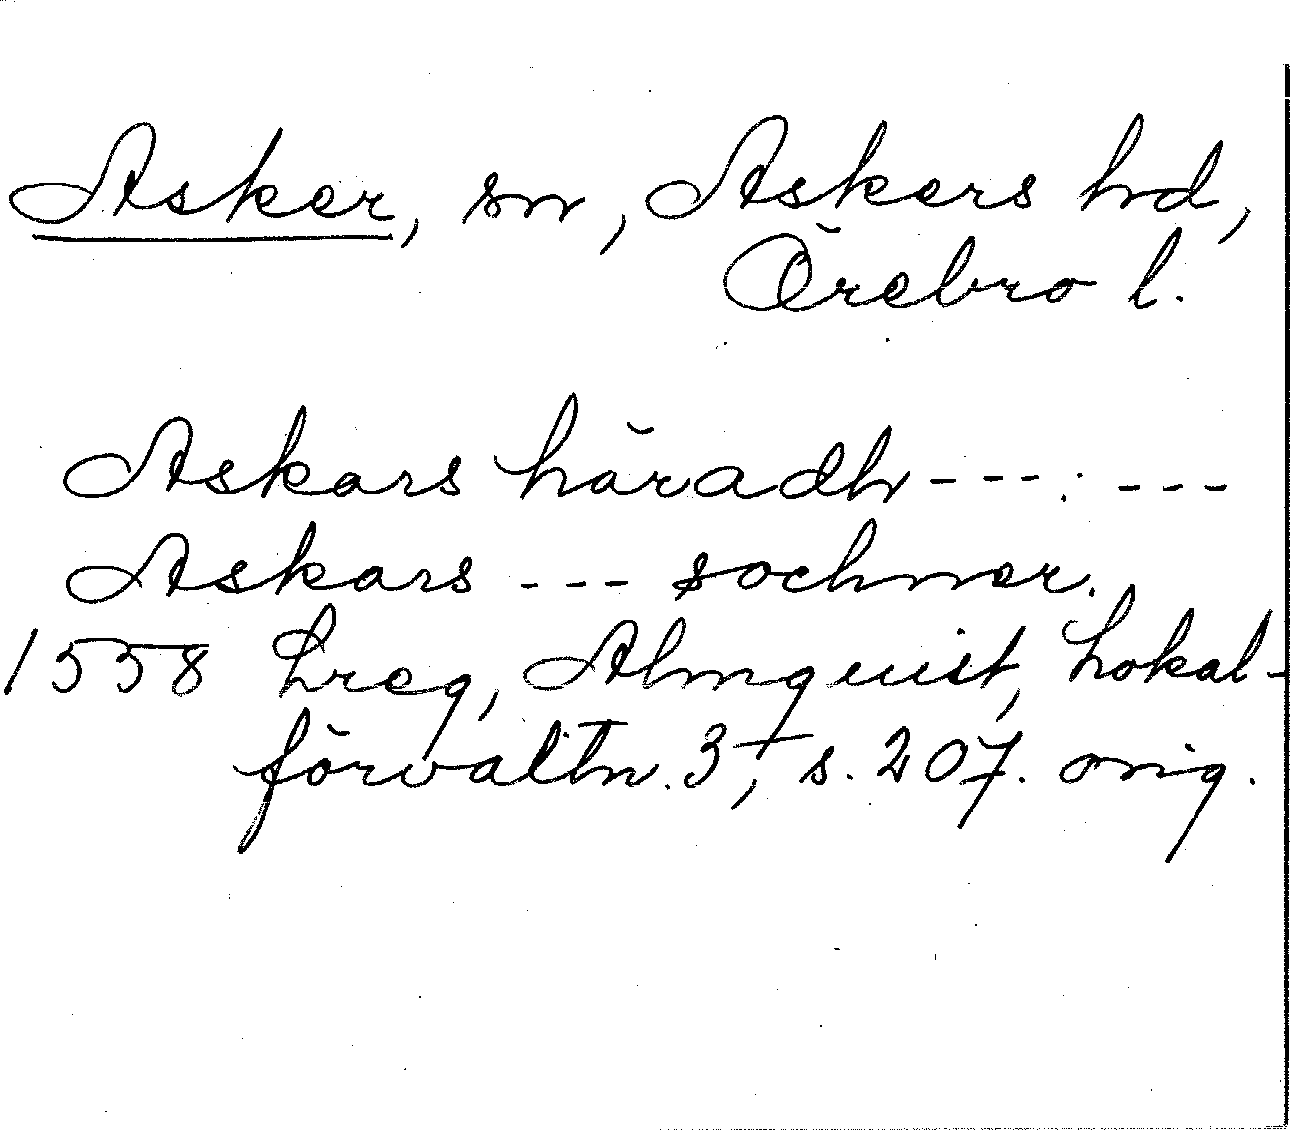 Asker, sn, Askers hd,
Örebro l.
Askars häradh ---: ---
Askars --- sochner.
1558 Lreg, Almquist, Lokal-
förvaltn. 3, s. 207. orig.